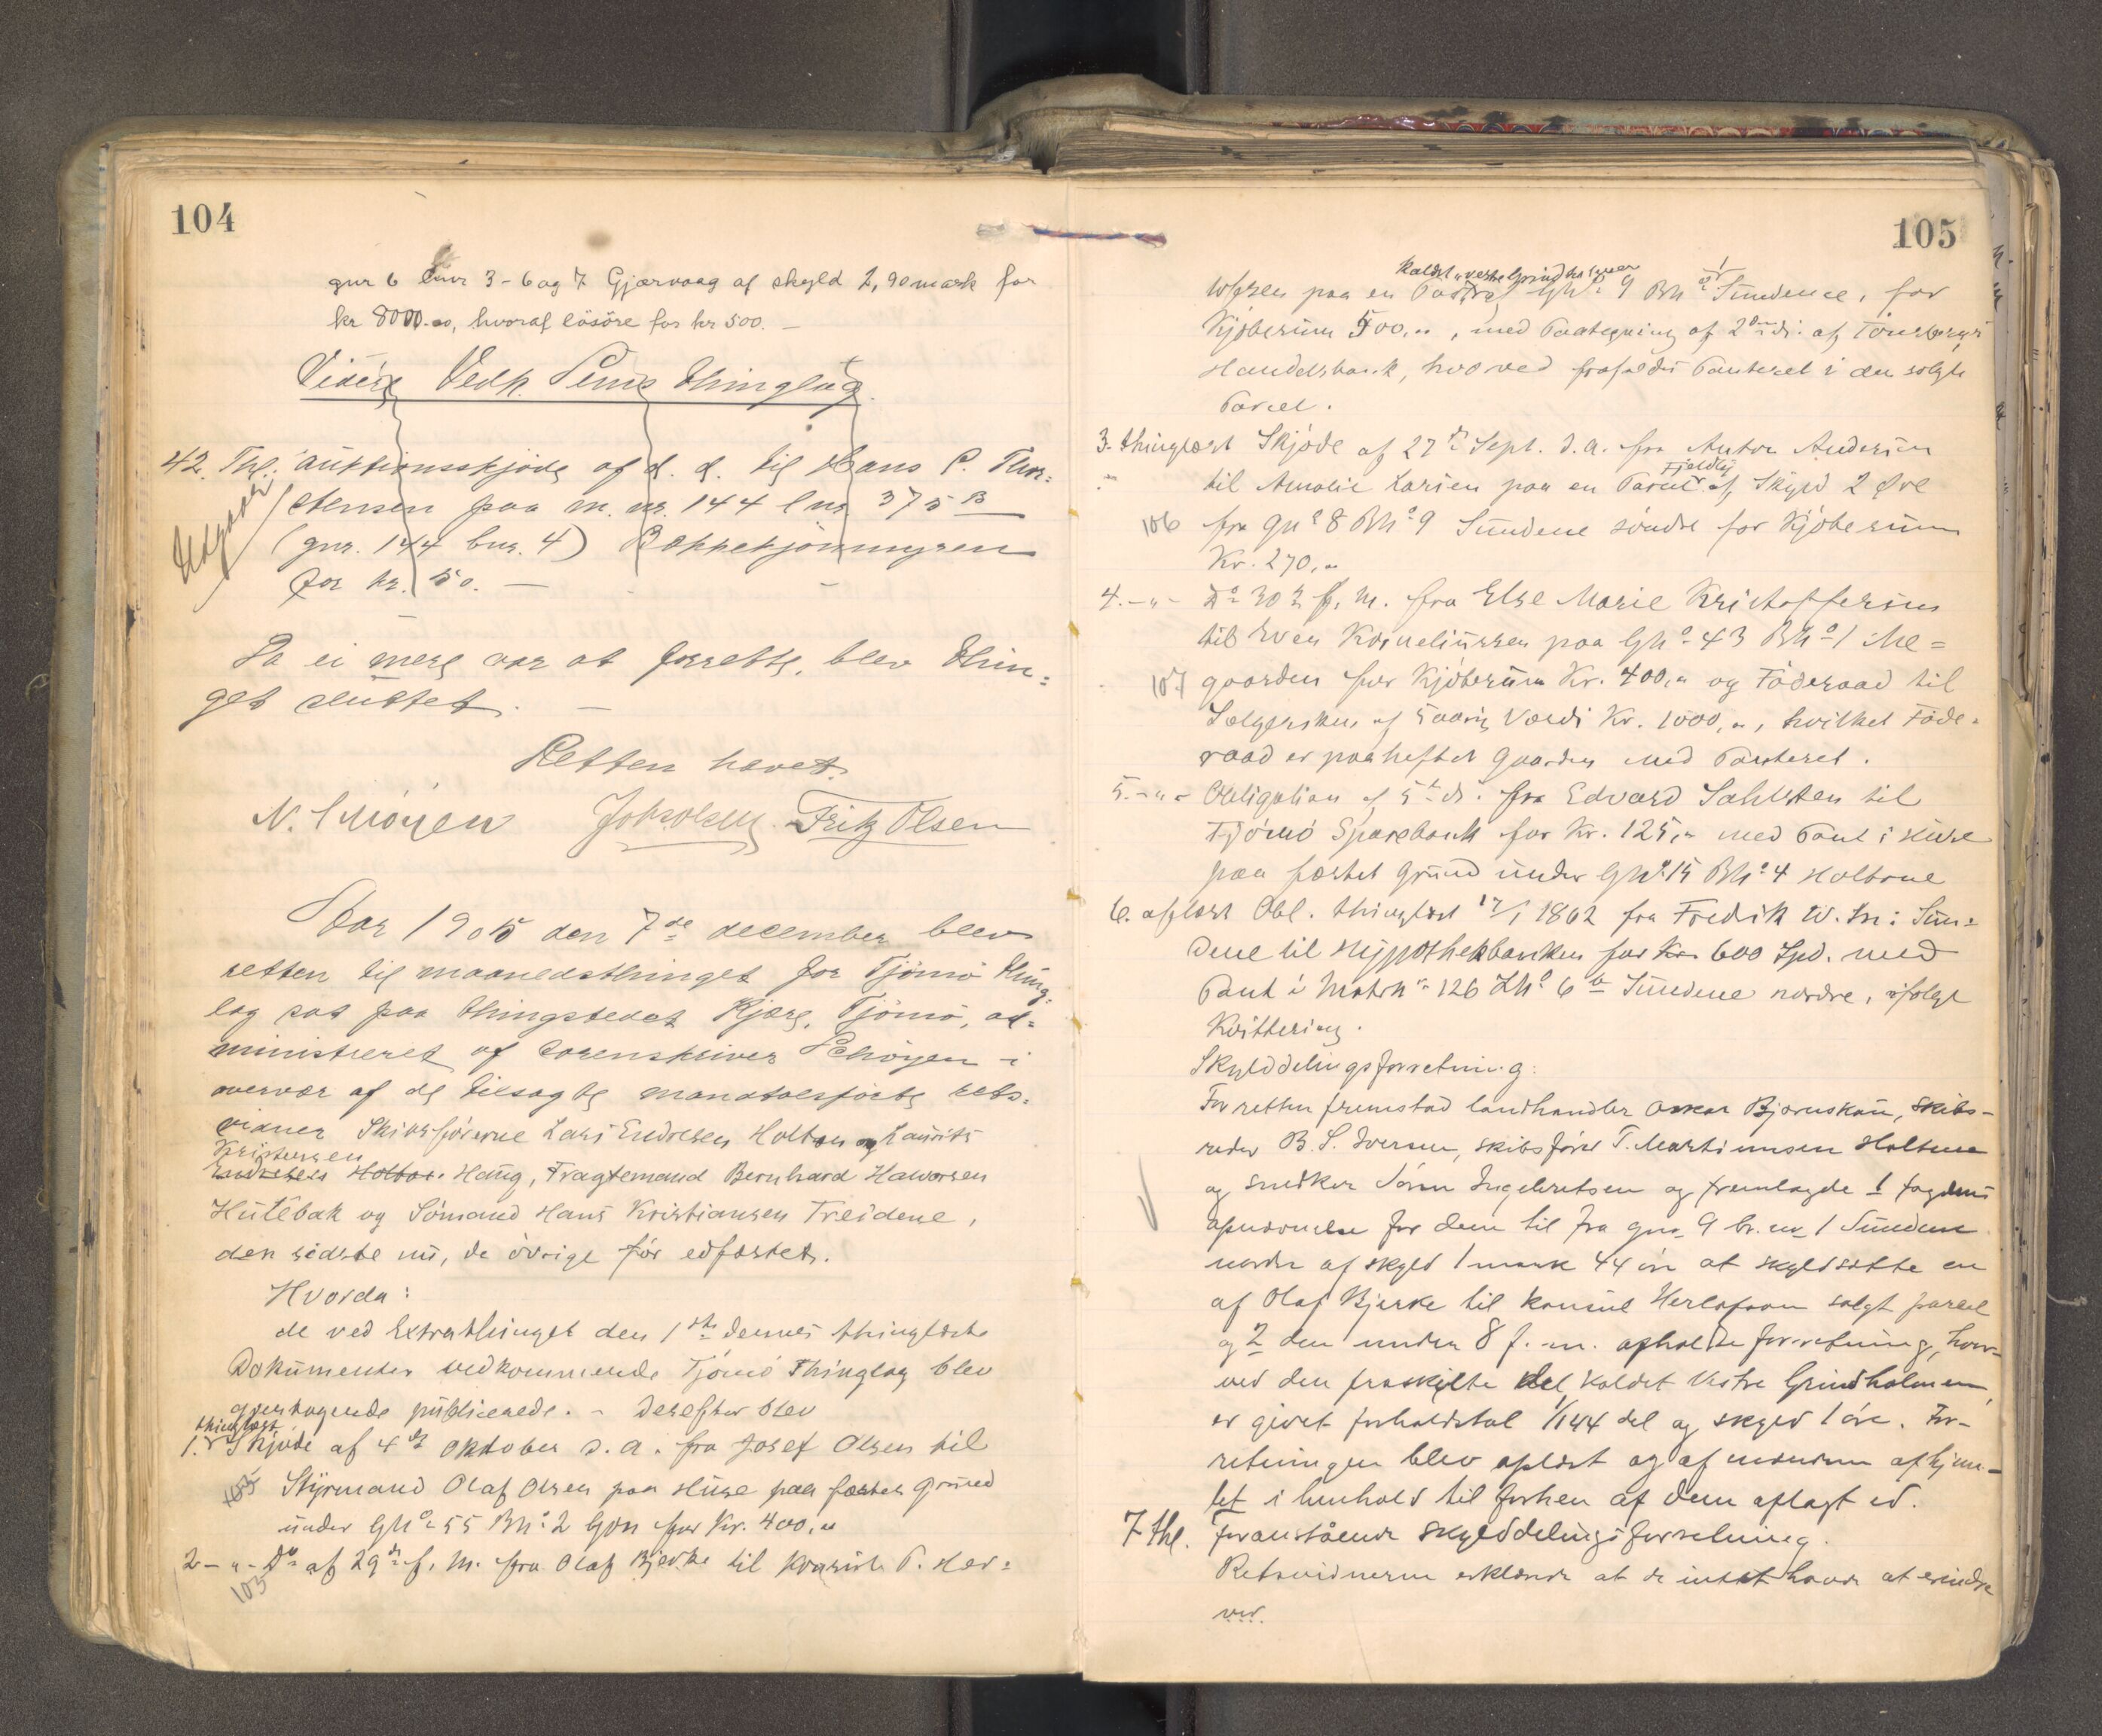 104
gnr 6 bnr 3-6 og 7 Gjærvaag af skyld 2,90 mark for
kr 8000.00, hvoraf løsøre for kr 500. —
Videre Vedk. Sems thinglag.
42. Thl. auktionsskjøde af d. d. til Hans P. Thor=
stensen paa m. nr. 144 lnr 375 B
(gnr. 144 bnr. 4) Bøkkekjønmyren
for kr. 50. —
Udgaar
Da ei mere var at forrette, blev thin=
get sluttet. —
Retten hævet.
N. Schöyen Fritz Olsen
Aar 1905 den 7de december blev
retten til maanedsthinget for Tjømø thing=
lag sat paa thingstedet Kjære, Tjømø, ad=
ministreret af sorenskriver Schöyen i
overvær af de tilsagte mandtalsførte rets=
vidner Skibsførerne Lars Endresen Holtan og Laurits
Kristensen
Haug, Fragtemand Bernhard Halvorsen
Hulebak og Sømand Hans Kristiansen Treidene,
den sidste nu, de øvrige før edfæstet.
Hvorda:
de ved Extrathinget den 1ste dennes thinglæste
Dokumenter vedkommende Tjømø Thinglag blev
publicerede. - Derefter blev
thinglæst
1. Skjøde af 4de Oktober d. a. fra Josef Olsen til
Styrmand Olaf Olsen paa Huse paa fæstet Grund
under Gno 55 Bno 2 Gjøn for Kr. 400,"
2 - " - Do af 29de f. M. fra Olaf Bjerke til P. Her=
103
105
kaldet "vestre Grindholmen
lofsen paa en Parcel af Gno 9 Bno 1 Sundene, for
Kjøbesum 500,", med Paategning af 2den ds. af Tønsbergs
Handelsbank, hvorved frafaldes Panteret i den solgte
Parcel.
3. thinglæst Skjøde af 27de Sept. d. a. fra Anton Andersen
Fjeldly
til Amalie Larsen paa en Parcel af Skyld 2 Øre
106 fra Gno 8 Bno 9 Sundene søndre for Kjøbesum
Kr. 270,"
4. - " - Do 30te f. M. fra Else Marie Kristoffersen
til Sven Korneliussen paa Gno 43 Bno 1 Me=
107 gaarden for Kjøbesum Kr. 400," og Føderaad til
Sælgersken af 5 aarig Værdi Kr. 1000,", hvilket Føde=
raad er paaheftet Gaarden med Panteret.
5. - " - Obligation af 5te ds. fra Edvard Sahlsten til
Tjømø Sparebank for Kr. 125," med Pant i Huse
paa fæstet Grund under Gno 15 Bno 4 Holtane
6. aflæst Obl. thinglæst 17/1 1862 fra Fredrik W. Sun=
dene til Hypothekbanken for 600 Spd. med
Pant i Matrn 126 Lno 6 b Sundene nordre, ifølge
Kvittering.
Skylddelingsforretning:
For retten fremstod landhandler Oskar Bjørnskau, skibs-
reder B. S. Iversen, skibsfører T. Martinusen Holtene
og snedker Søren Ingebretsen og fremlagde 1 fogdens
opnævnelse for dem til fra gnr 9 br. nr 1 Sundene
nordre af skyld 1 mark 44 øre at skyldsætte en
af Olaf Bjerke til konsul Herlofson solgt parcel
og 2 den under 8 f. m. afholdte forretning, hvor-
ved den fraskilte del, kaldet Vestre Grindholmen,
er givet forholdstal 1/144 del og skyld 1 øre. For-
retningen blev oplæst og af mændene afhjem-
let i henhold til forhen af dem aflagt ed.
7 thl. foranstående skylddelingsforretning.
Retsvidnerne erklærede at de intet havde at erindre
ved.